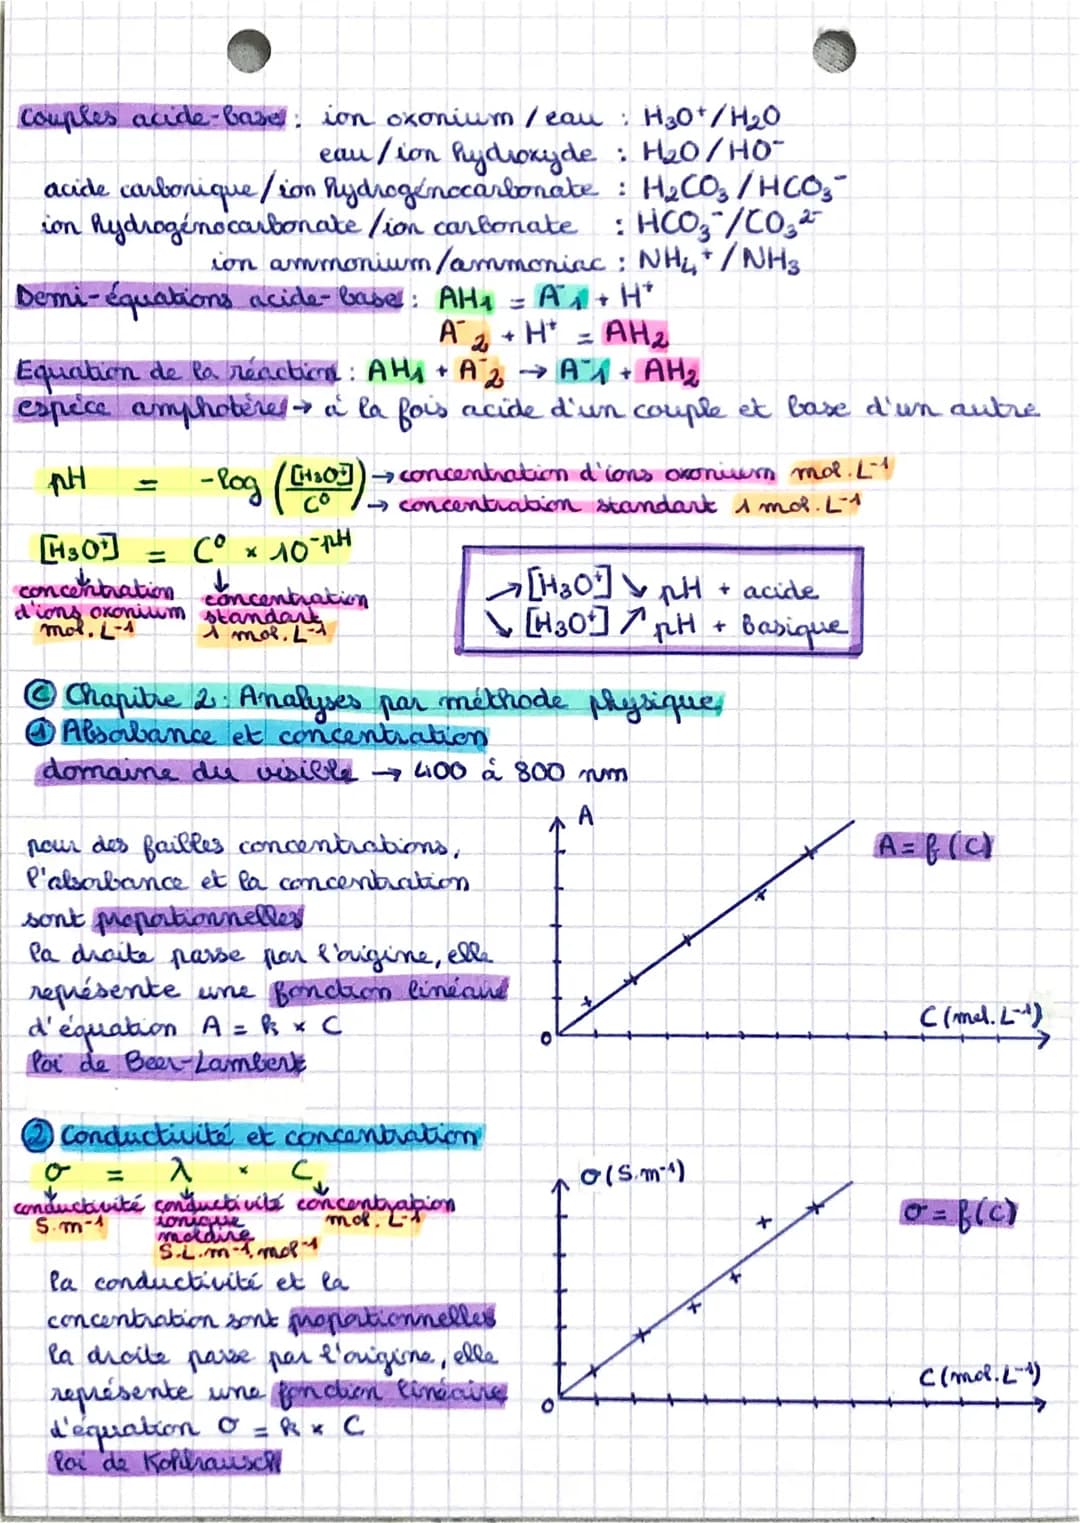 Couples acide-base : ion oxonium / eau : H3O+/H2O
eau/ion hydroxyde : H2O/HO-
acide carbonique/ion hydrogénocarbonate : H2CO3/HCO3-
ion hydrogénocarbonate/ion carbonate : HCO3-/CO3 2-
ion ammonium/ammoniac : NH4+/NH3
Demi-équations acide-base : AH1 = A-1 + H+
A-2 + H+ = AH2
Equation de la réaction : AH1 + A-2 → A-1 + AH2
espèce amphotère → à la fois acide d'un couple et base d'un autre
pH = -log ([H3O+]/C°) → concentration d'ions oxonium mol.L-1
→ concentration standart 1 mol.L-1
[H3O+] = C° × 10-pH
concentration d'ions oxonium mol.L-1
concentration standart 1 mol.L-1
↗ [H3O+] ↘ pH + acide
↘ [H3O+] ↗ pH + basique
C Chapitre 2 : Analyses par méthode physique
1 Absorbance et concentration
domaine du visible → 400 à 800 nm
pour des faibles concentrations,
l'absorbance et la concentration
sont proportionnelles
la droite passe par l'origine, elle
représente une fonction linéaire
d'équation A = k × C
loi de Beer-Lambert
A
A = f(C)
C (mol.L-1)
0
2 Conductivité et concentration
σ = λ × C
conductivité S.m-1
conductivité ionique molaire S.L.m-1.mol-1
concentration mol.L-1
la conductivité et la
concentration sont proportionnelles
la droite passe par l'origine, elle
représente une fonction linéaire
d'équation σ = k × C
loi de Kohlrausch
σ (S.m-1)
σ = f(C)
C (mol.L-1)
0